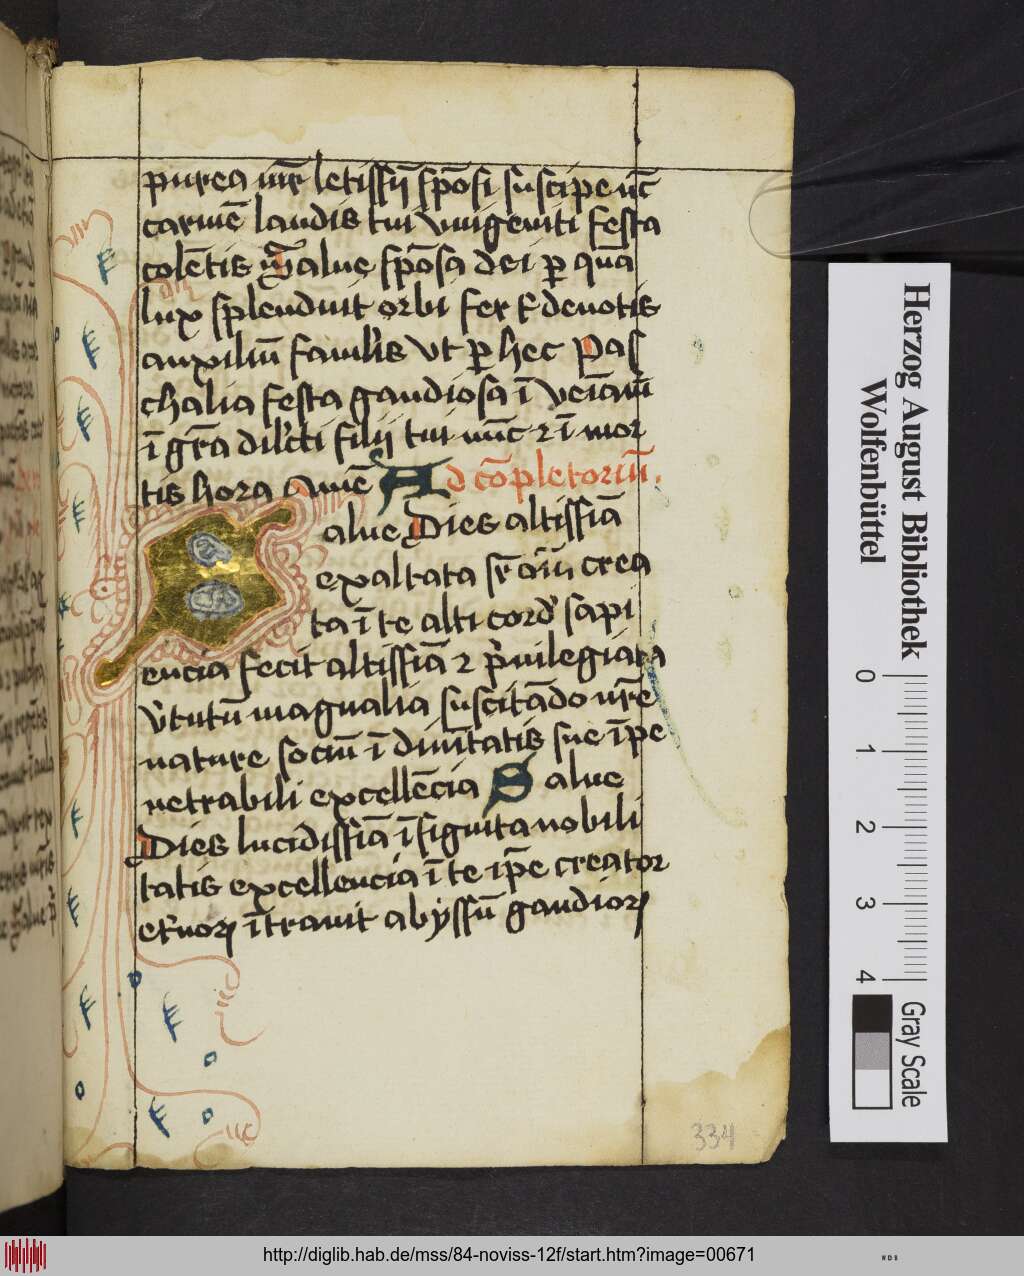 purea mr̄ letissīj spōsi suscipe nūc
carmē laudis tui vnigeniti festa
colētis Salue spōsa dei p̲ quā
lux splenduit orbi fer & deuotis
auxiliū famul̉is Vt p̲ hec Pas
chalia festa gaudiosa ī veīam
ī grā dil̉cti filij tui nūc ⁊ ī mor
tis hora Amē Ad cōpletoriū.
alue Dies altissīa
exaltata sr̄ oīm crea
ta ī te alti cord̉ sapi
encia fecit altissīa ⁊ p̉uilegiata
v̉tutū magnalia suscitādo nr̄e
nature sociū ī diuītatis sue īpe
netrabili excellēcia Salue
Dies lucidissīa īsignita nobili
tatis excellencia ī te ip̄e creator
et̉noꝝ ītrauit abyssū gaudioꝝ
334
Herzog August Bibliothek
Wolfenbüttel
0 1 2 3 4
Gray Scale
http://diglib.hab.de/mss/84-noviss-12f/start.htm?image=00671